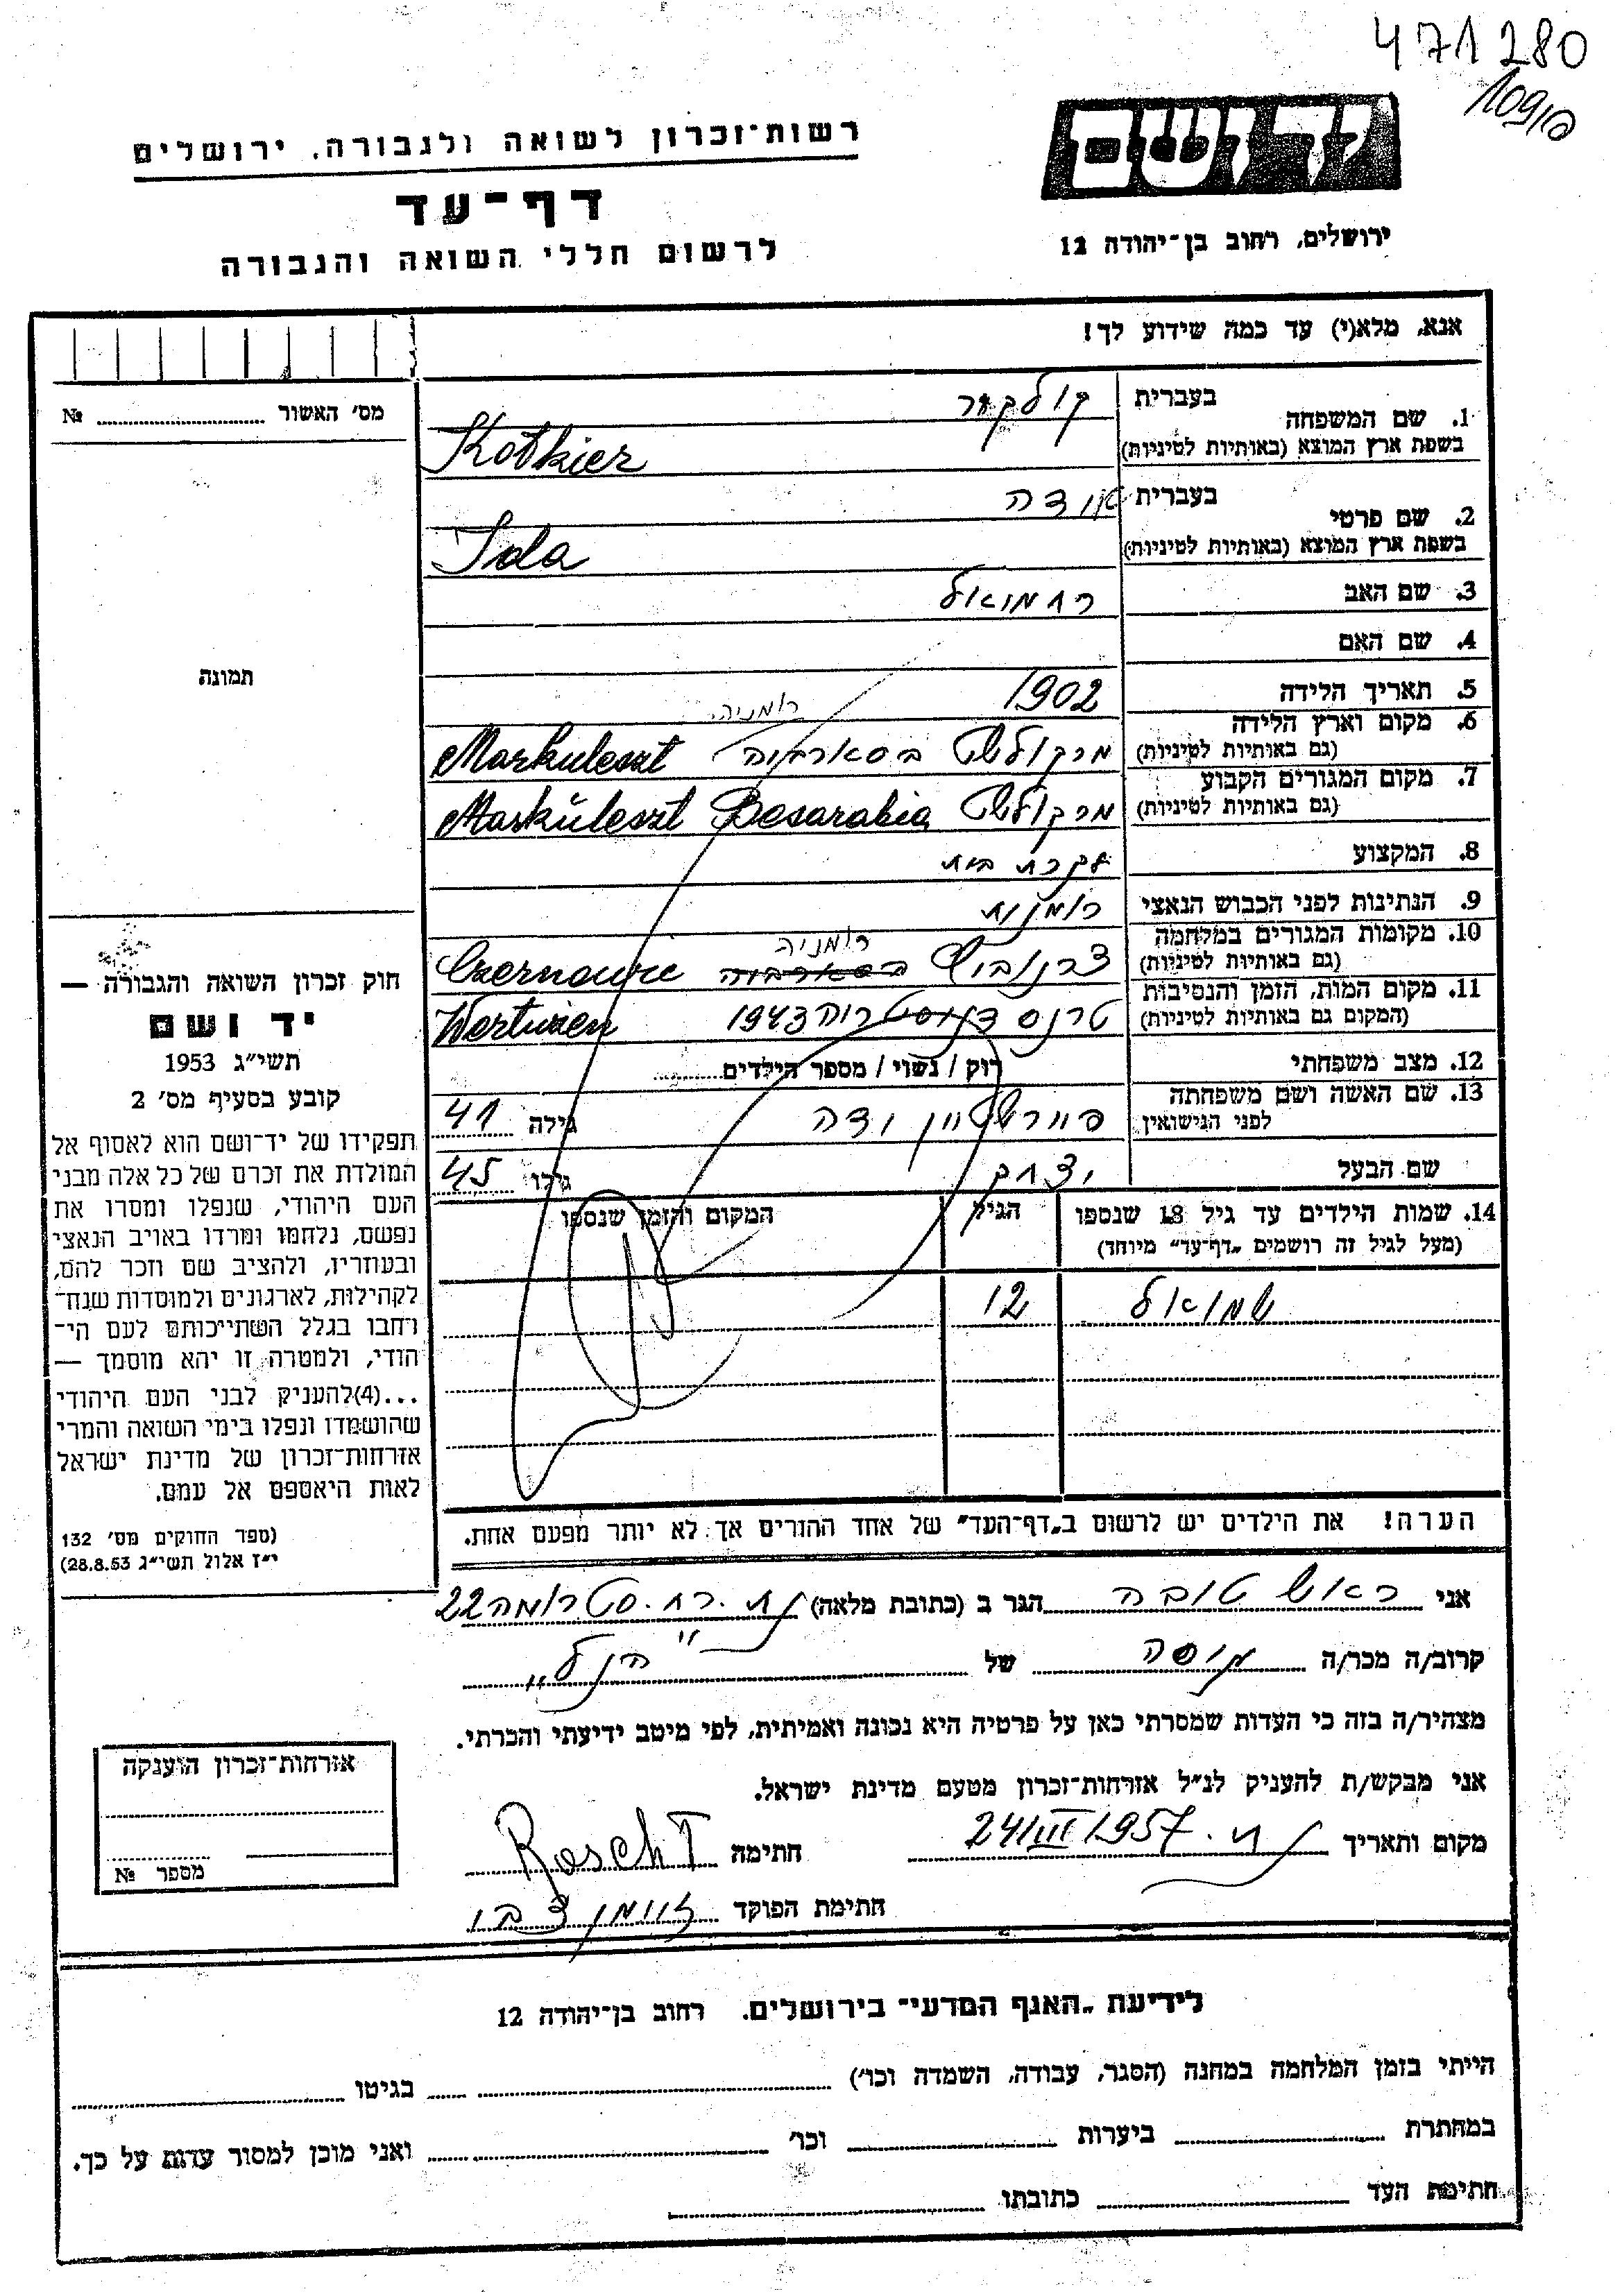 471280
109/10
יד ושם
ירושלים, רחוב בן־יהודה 12
רשות־זכרון לשואה ולגבורה, ירושלים
דף־עד
לרשום חללי השואה והגבורה
אנא, מלא(י) עד כמה שידוע לך!
מס' האשור № 
תמונה
1. שם המשפחה בעברית
בשפת ארץ המוצא (באותיות לטיניות) Kotkier
2. שם פרטי בעברית אידה
בשפת ארץ המוצא (באותיות לטיניות) Ida
3. שם האב רחמואל
4. שם האם
5. תאריך הלידה 1902
רומניה
6. מקום וארץ הלידה מרקולשט בסארביה Markuleszt
(גם באותיות לטיניות)
7. מקום המגורים הקבוע מרקולשט Besarabia Markuleszt
(גם באותיות לטיניות)
8. המקצוע עקרת בית
9. הנתינות לפני הכבוש הנאצי רומנית
רומניה
10. מקומות המגורים במלחמה צרנוביץ בסארביה Czernowic
(גם באותיות לטיניות)
11. מקום המות, הזמן והנסיבות טרנסדניסטריה 1943 Wertuzen
(המקום גם באותיות לטיניות)
12. מצב משפחתי רוק / נשוי / מספר הילדים
13. שם האשה ושם משפחתה
לפני הנישואין פיירשטיין גילה 41
שם הבעל יצחק גילו 45
14. שמות הילדים עד גיל 18 שנספו הגיל המקום והזמן שנספו
(מעל לגיל זה רושמים „דף־עד" מיוחד)
שמואל 12
הערה! את הילדים יש לרשום ב„דף־העד" של אחד ההורים אך לא יותר מפעם אחת.
חוק זכרון השואה והגבורה —
יד ושם
תשי"ג 1953
קובע בסעיף מס' 2
תפקידו של יד־ושם הוא לאסוף אל
המולדת את זכרם של כל אלה מבני
העם היהודי, שנפלו ומסרו את
נפשם, נלחמו ומרדו באויב הנאצי
ובעוזריו, ולהציב שם וזכר להם,
לקהילות, לארגונים ולמוסדות שנח־
רחבו בגלל השתייכותם לעם הי־
הודי, ולמטרה זו יהא מוסמך —
...(4)להעניק לבני העם היהודי
שהושמדו ונפלו בימי השואה והמרי
אזרחות־זכרון של מדינת ישראל
לאות היאספם אל עמם.
(ספר החוקים מס' 132
י"ז אלול תשי"ג 28.8.53)
אני ראש טובה הגר ב (כתובת מלאה) רח. סטרומה 22
קרוב/ה מכר/ה גיסה של הנ"ל
מצהיר/ה בזה כי העדות שמסרתי כאן על פרטיה היא נכונה ואמיתית, לפי מיטב ידיעתי והכרתי.
אני מבקש/ת להעניק לנ"ל אזרחות־זכרון מטעם מדינת ישראל.
מקום ותאריך 24/III 1957 חתימה Rosch T
חתימת הפוקד זוימן צבי
אזרחות־זכרון הוענקה
מספר №
לידיעת „האגף המדעי" בירושלים. רחוב בן־יהודה 12
הייתי בזמן המלחמה במחנה (הסגר, עבודה, השמדה וכו') בגיטו
במחתרת ביערות וכו' ואני מוכן למסור עדות על כך.
חתימת העד כתובתו